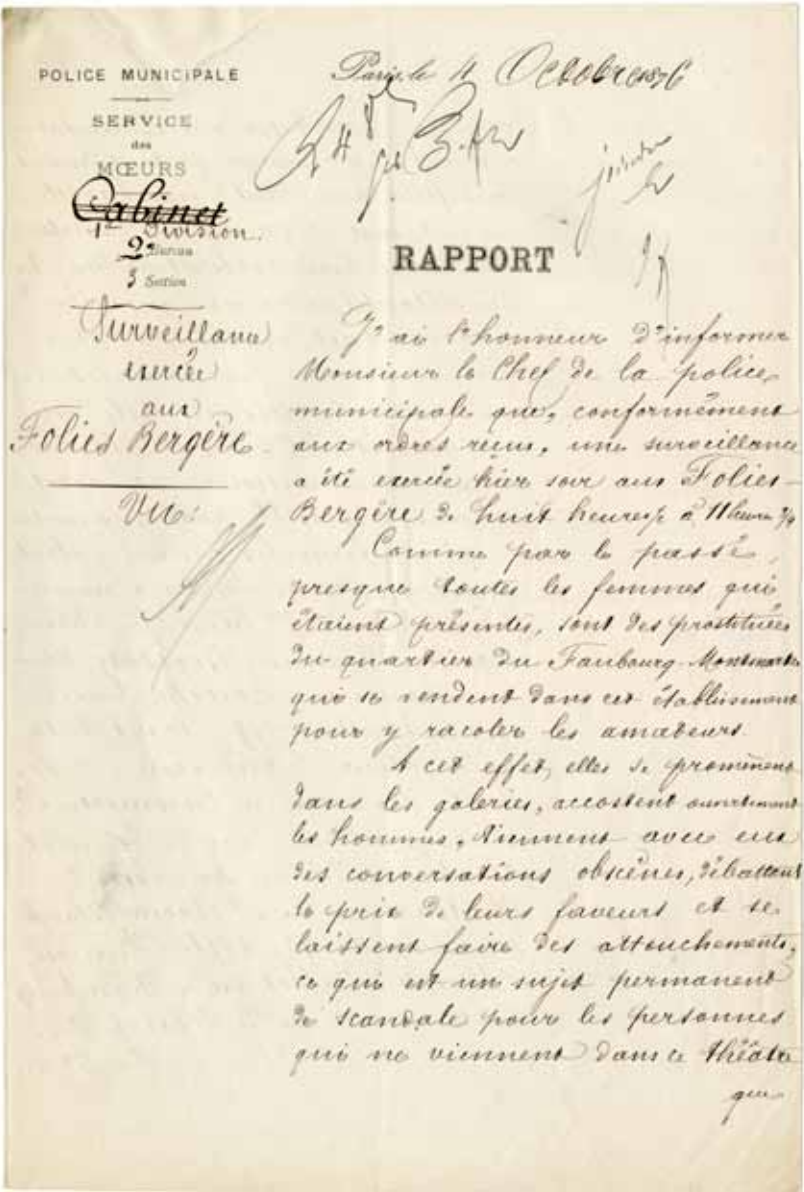 POLICE MUNICIPALE
SERVICE
des
MŒURS
Cabinet
1re Division.
2e Bureau
3 Section
Surveillance
exercée
aux
Folies Bergère
Vu:
Paris, le 4 Octobre 1876
RAPPORT
J'ai l'honneur d'informer
Monsieur le Chef de la police
municipale que, conformément
aux ordres reçus, une surveillance
a été exercée hier soir aux Folies-
Bergère de huit heures ½ à 11 heures ¾
Comme par le passé,
presque toutes les femmes qui
étaient présentes, sont des prostituées
du quartier du Faubourg-Montmartre
qui se rendent dans cet établissement
pour y racoler les amateurs.
A cet effet, elles se promènent
dans les galeries, accostent ouvertement
les hommes, tiennent avec eux
des conversations obscènes, débattent
le prix de leurs faveurs et se
laissent faire des attouchements,
ce qui est un sujet permanent
de scandale pour les personnes
qui ne viennent dans ce théâtre
que